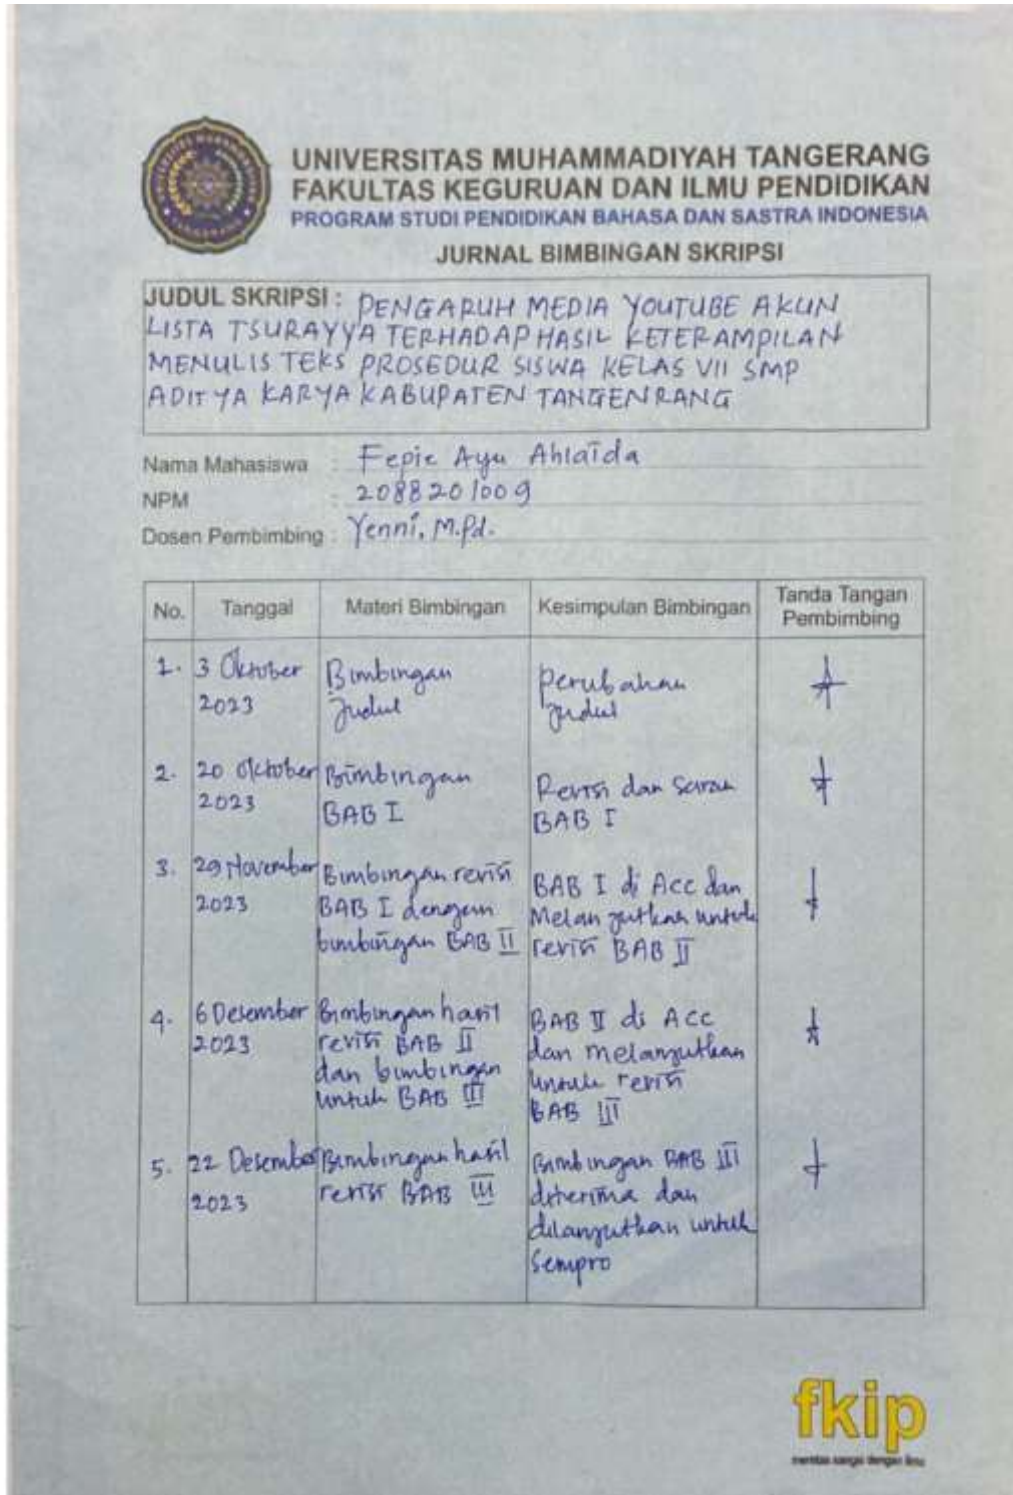 UNIVERSITAS MUHAMMADIYAH TANGERANG
FAKULTAS KEGURUAN DAN ILMU PENDIDIKAN
PROGRAM STUDI PENDIDIKAN BAHASA DAN SASTRA INDONESIA
JURNAL BIMBINGAN SKRIPSI
JUDUL SKRIPSI : PENGARUH MEDIA YOUTUBE AKUN
LISTA TSURAYYA TERHADAP HASIL KETERAMPILAN
MENULIS TEKS PROSEDUR SISWA KELAS VII SMP
ADITYA KARYA KABUPATEN TANGENRANG
Nama Mahasiswa : Fepie Ayu Ahlaida
NPM : 2088201009
Dosen Pembimbing : Yenni, M.Pd.
No. Tanggal Materi Bimbingan Kesimpulan Bimbingan Tanda Tangan Pembimbing
1. 3 Oktober Bimbingan Perubahan
2023 Judul Judul
2. 20 Oktober Bimbingan Revisi dan Saran
2023 BAB I BAB I
3. 29 November Bimbingan revisi BAB I di Acc dan
2023 BAB I dengan Melanjutkan untuk
bimbingan BAB II revisi BAB II
4. 6 Desember Bimbingan hasil BAB II di Acc
2023 revisi BAB II dan melanjutkan
dan bimbingan untuk revisi
untuk BAB III BAB III
5. 22 Desember Bimbingan hasil Bimbingan BAB III
2023 revisi BAB III diterima dan
dilanjutkan untuk
Sempro
fkip